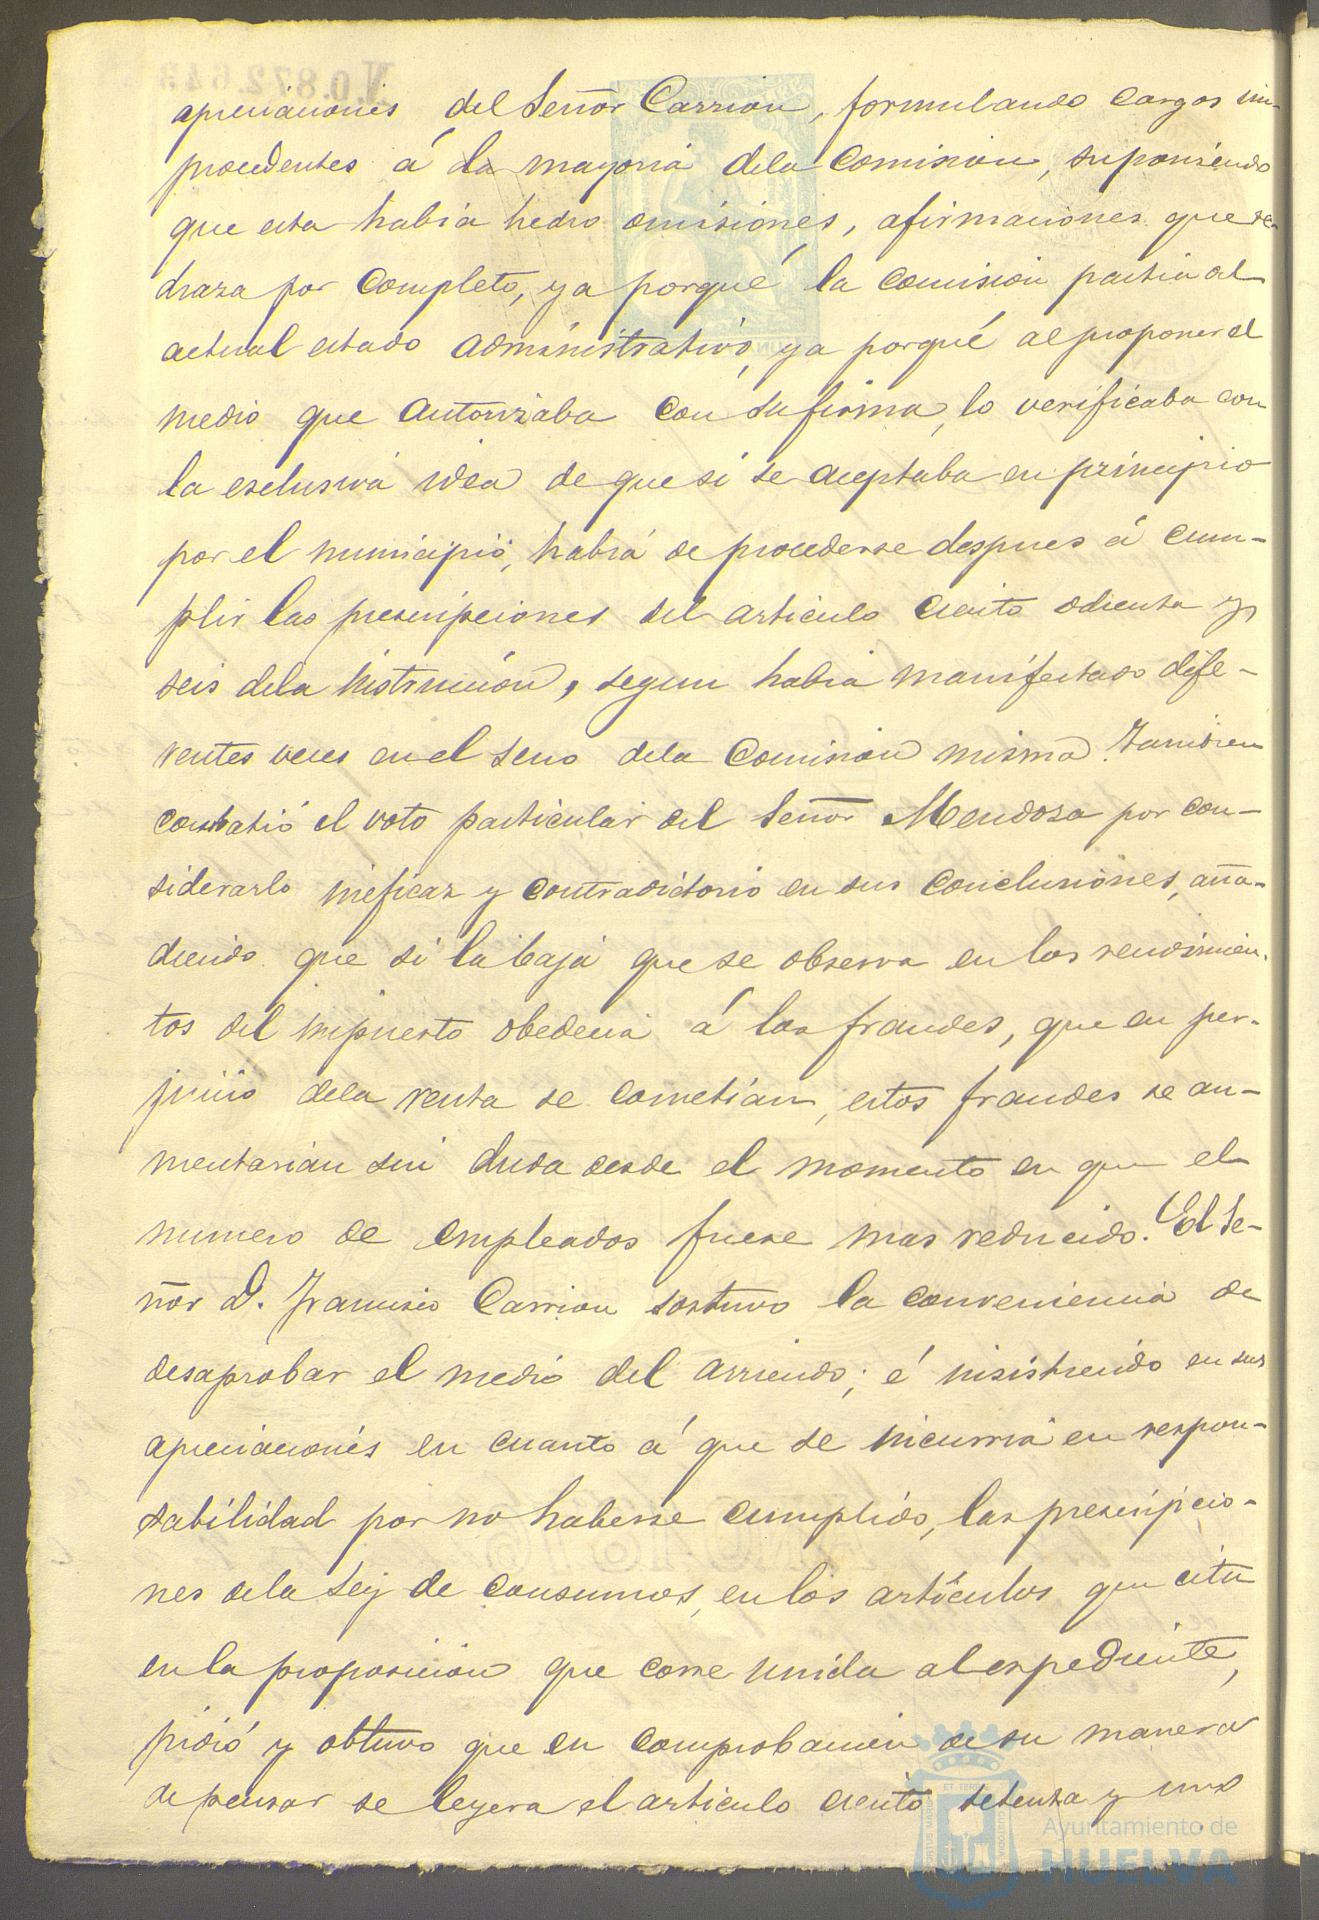 apreciaciones del Señor Carrion, formulando cargos im-
procedentes á la mayoria dela Comision, suponiendo
que esta habia hecho omisiones, afirmaciones que re-
chaza por completo, ya porqué la Comision partia del
actual estado administrativo, ya porqué al proponer el
medio que autorizaba con su firma, lo verificaba con
la esclusiva idea de que si se aceptaba en principio
por el municipio, habrá de procederse despues á cum-
plir las prescripciones del articulo ciento ochenta y
seis dela Instruccion, segun habia manifestado dife-
rentes veces en el seno dela Comision misma. Tambien
combatió el voto particular del Señor Mendoza por con-
siderarlo ineficaz y contradictorio en sus conclusiones, aña-
diendo que si la baja que se observa en los rendimien-
tos del impuesto obedecia á los fraudes, que en per-
juicio dela renta se cometian, estos fraudes se au-
mentarian sin duda desde el momento en que el
numero de empleados fuese mas reducido. El Se-
ñor D. Francisco Carrion sostuvo la conveniencia de
desaprobar el medio del arriendo; é insistiendo en sus
apreciaciones en cuanto á que se incurria en respon-
sabilidad por no haberse cumplido, las prescripcio-
nes dela Ley de Consumos, en los artículos que cita
en la proposicion que corre unida al espediente,
pidió y obtuvo que en comprobacion de su manera
de pensar se leyera el articulo ciento setenta y uno
Ayuntamiento de
HUELVA